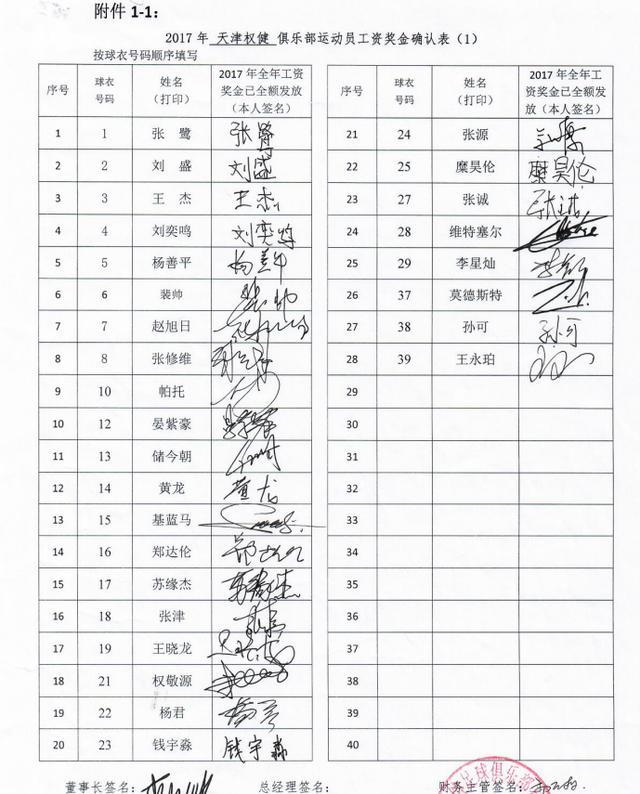 附件 1-1:
2017 年 天津权健 俱乐部运动员工资奖金确认表（1）
按球衣号码顺序填写
序号 球衣号码 姓名（打印） 2017 年全年工资奖金已全额发放（本人签名）
1 1 张 鹭 张鹭
2 2 刘 盛 刘盛
3 3 王 杰 王杰
4 4 刘奕鸣 刘奕鸣
5 5 杨善平 杨善平
6 6 裴帅
7 7 赵旭日
8 8 张修维
9 10 帕托
10 12 晏紫豪
11 13 储今朝
12 14 黄龙 黄龙
13 15 基蓝马
14 16 郑达伦
15 17 苏缘杰
16 18 张津
17 19 王晓龙
18 21 权敬源
19 22 杨君
20 23 钱宇淼 钱宇淼
序号 球衣号码 姓名（打印） 2017 年全年工资奖金已全额发放（本人签名）
21 24 张源
22 25 糜昊伦 糜昊伦
23 27 张诚
24 28 维特塞尔
25 29 李星灿
26 37 莫德斯特
27 38 孙可 孙可
28 39 王永珀
29
30
31
32
33
34
35
36
37
38
39
40
董事长签名: 总经理签名: 财务主管签名:
足球俱乐部